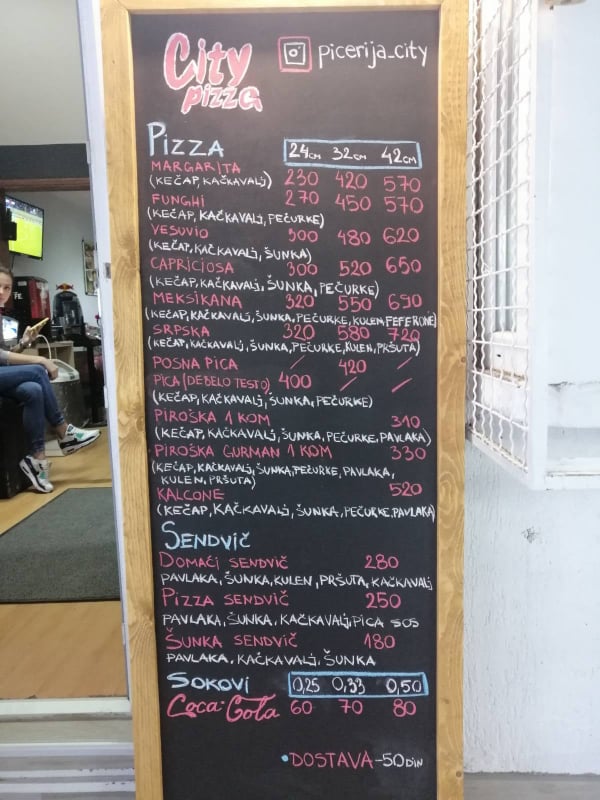 City pizza
picerija_city
Pizza 24cm 32cm 42cm
MARGARITA 230 420 570
(KEČAP, KAČKAVALJ)
FUNGHI 270 450 570
(KEČAP, KAČKAVALJ, PEČURKE)
VESUVIO 300 480 620
(KEČAP, KAČKAVALJ, ŠUNKA)
CAPRICIOSA 300 520 650
(KEČAP, KAČKAVALJ, ŠUNKA, PEČURKE)
MEKSIKANA 320 550 690
(KEČAP, KAČKAVALJ, ŠUNKA, PEČURKE, KULEN, FEFERONE)
SRPSKA 320 580 720
(KEČAP, KAČKAVALJ, ŠUNKA, PEČURKE, KULEN, PRŠUTA)
POSNA PICA / 420 /
PICA (DEBELO TESTO) 400 / /
(KEČAP, KAČKAVALJ, ŠUNKA, PEČURKE)
PIROŠKA 1 KOM 310
(KEČAP, KAČKAVALJ, ŠUNKA, PEČURKE, PAVLAKA)
PIROŠKA GURMAN 1 KOM 330
(KEČAP, KAČKAVALJ, ŠUNKA, PEČURKE, PAVLAKA,
KULEN, PRŠUTA)
KALCONE 520
(KEČAP, KAČKAVALJ, ŠUNKA, PEČURKE, PAVLAKA)
SENDVIČ
DOMAĆI SENDVIČ 280
PAVLAKA, ŠUNKA, KULEN, PRŠUTA, KAČKAVALJ
PIZZA SENDVIČ 250
PAVLAKA, ŠUNKA, KAČKAVALJ, PICA SOS
ŠUNKA SENDVIČ 180
PAVLAKA, KAČKAVALJ, ŠUNKA
SOKOVI 0,25 0,33 0,50
Coca-Cola 60 70 80
•DOSTAVA-50DIN